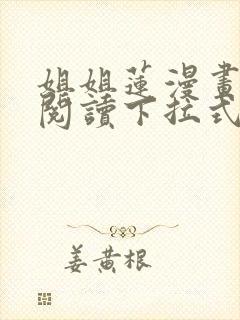 姐姐蓮漫畫
閱讀下拉式
姜黄根